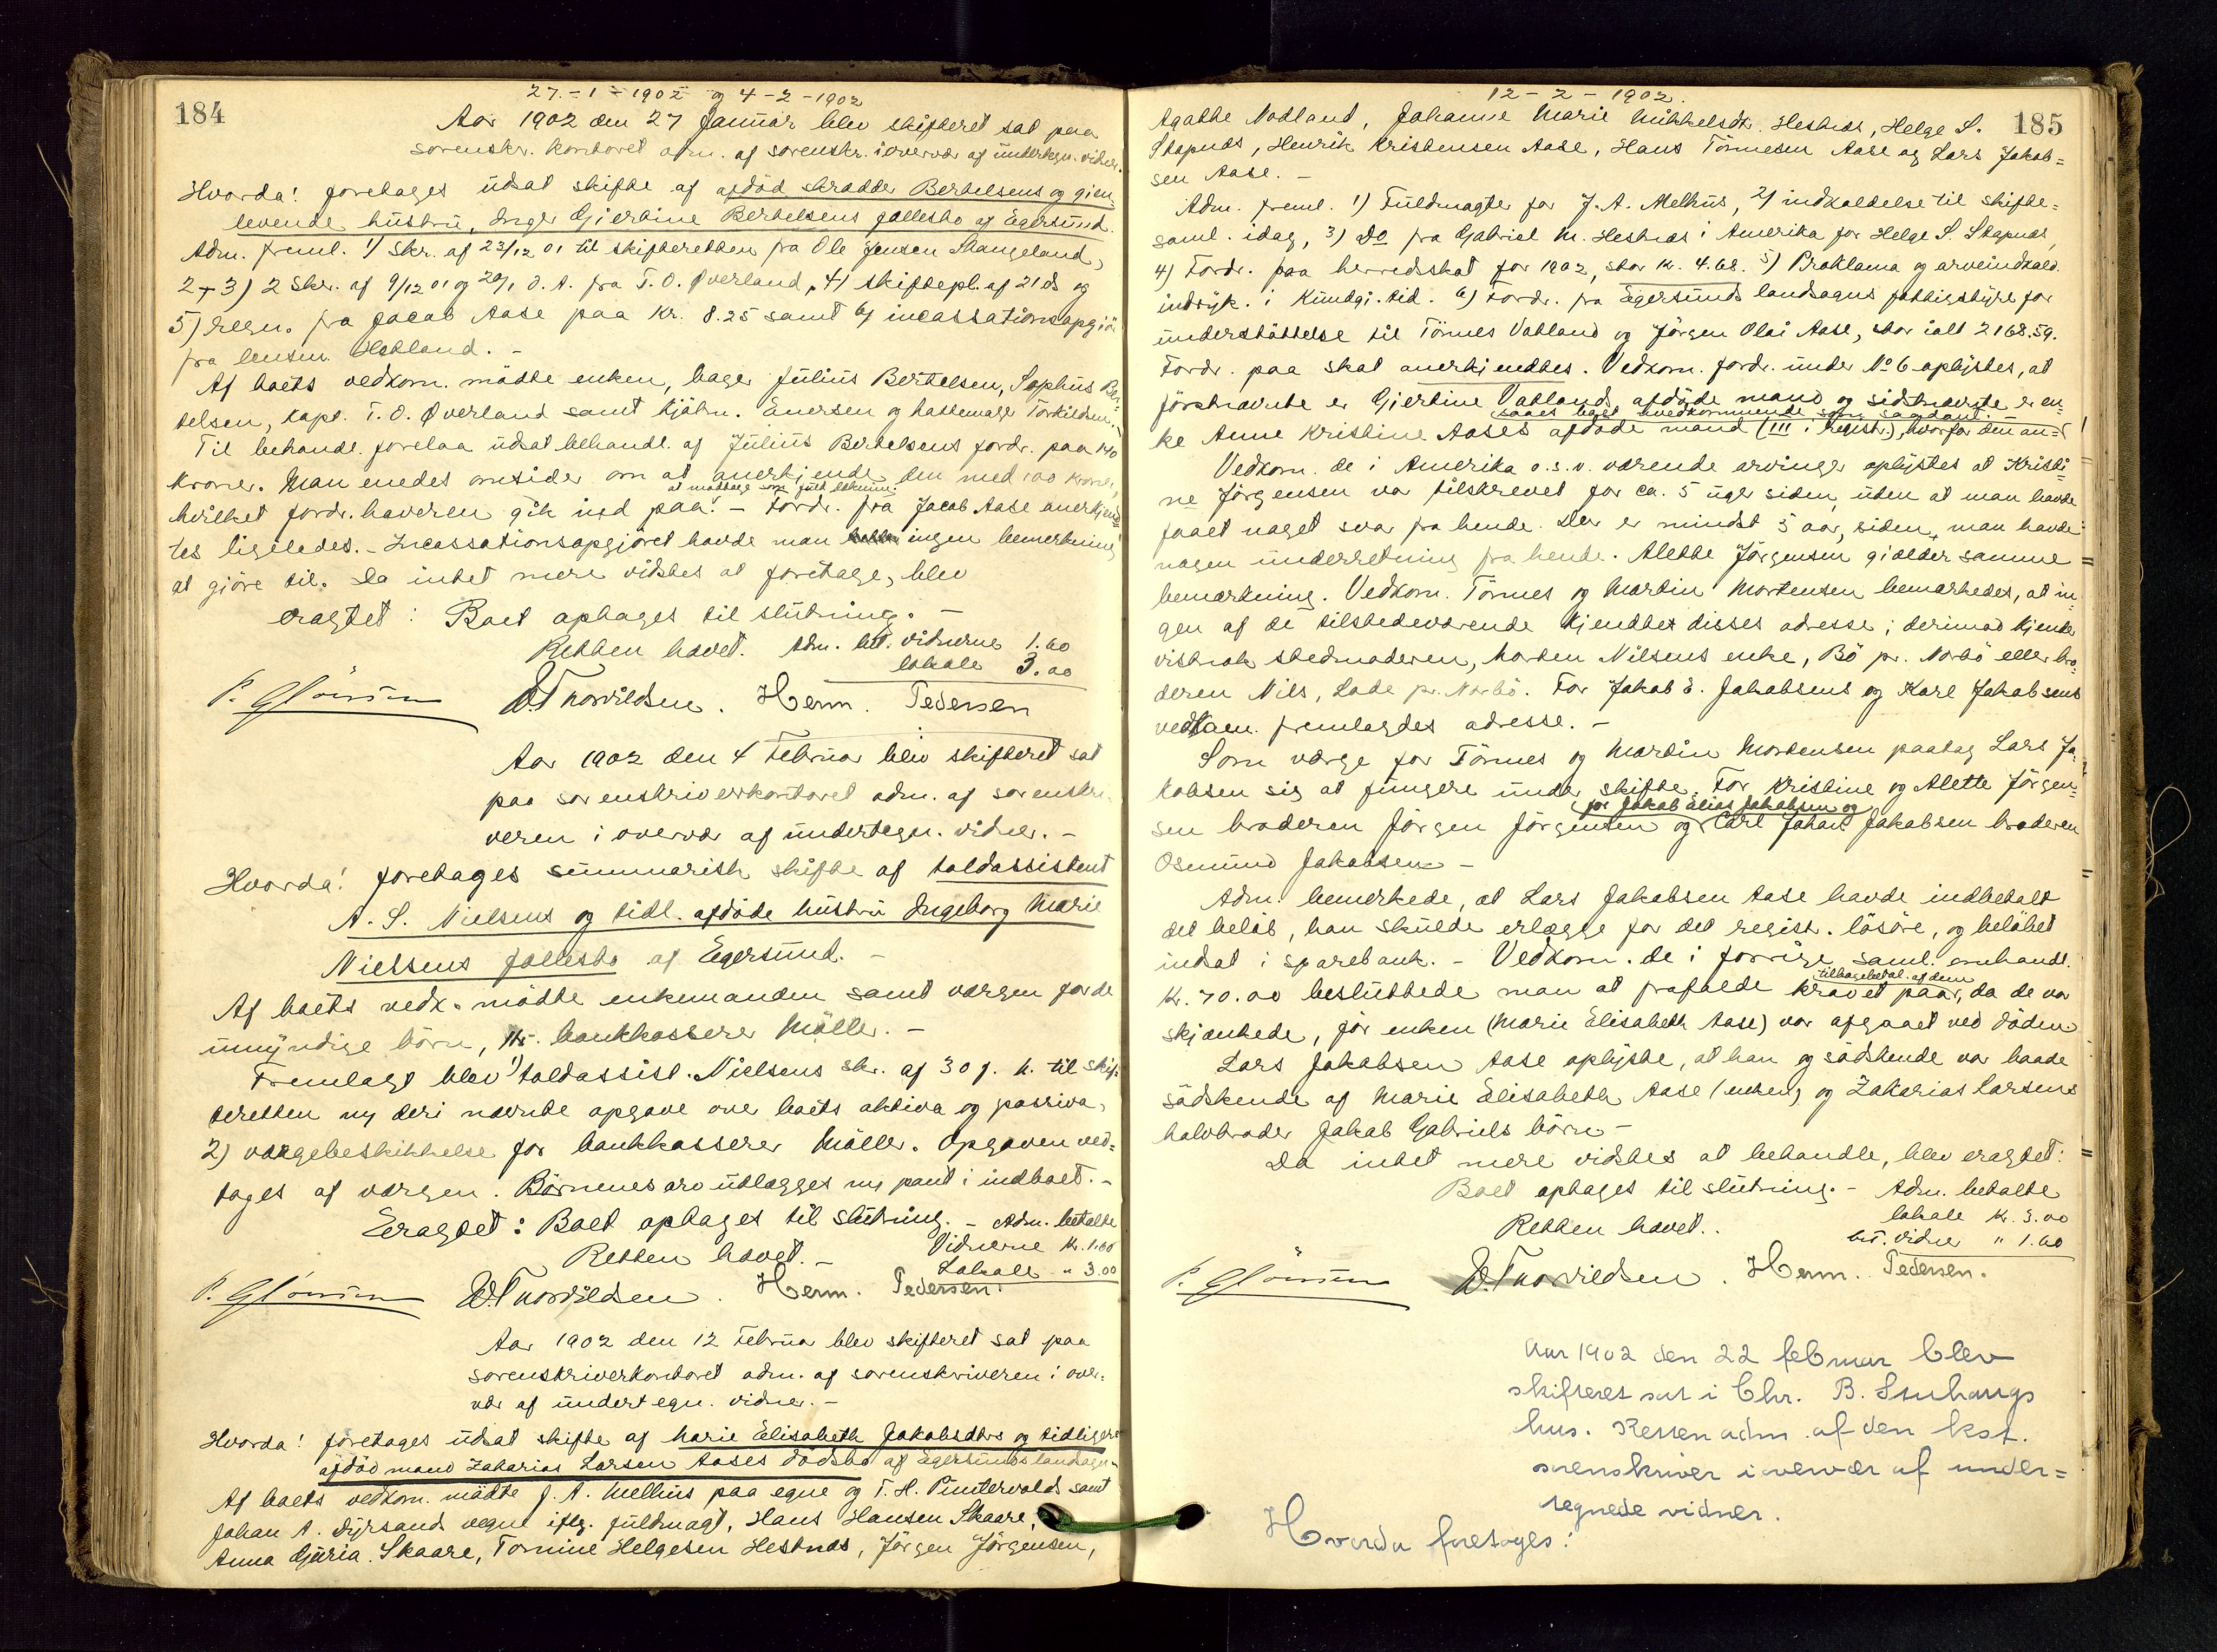 184
27.-1-1902 og 4-2-1902
Aar 1902 den 27 Januar blev skifteret sat paa
sorenskr. kontoret adm. af sorenskr. i overvær af undertegn. vidner.
Hvorda! foretages udsat skifte af afdød skrædder Bertelsens og gjen
levende hustru, Inger Gjertine Bertelsens fællesbo af Egersund.
Adm. freml. 1) Skr. af 23/12 01 til skifteretten fra Ole Jensen Stangeland,
2+3) 2 Skr. af 9/12 01 og 20/1 d. A. fra T. O. Øverland, 4) skiftepl. af 21 ds og
5) regn. fra Jacob Aase paa Kr. 8.25 samt 6) incassationsopgjör
fra lensm. Hetland. -
Af boets vedkom. mödte enken, bager Julius Bertelsen, Sophus Ber-
telsen, kapt. T. O. Øverland samt kjöbm. Enersen og hattemager Torkildsen.
Til behandl. forelaa udsat behandl. af Julius Bertelsens fordr. paa 140
kroner. Man enedes omsider om at anerkjende den med 100 kroner,
hvilket fordr. haveren gik ind paa at modtage som fuld bekomm. - Fordr. fra Jacob Aase anerkjend
tes ligeledes. - Incassationsopgjöret havde man ingen bemerkning
at gjöre til. Da intet mere vidstes at foretage, blev
eragtet: Boet optages til slutning. -
Retten hævet. Adm. bet. vidnerne 1.60
lokale 3.00
D. Thorvildsen. Herm. Pedersen
Aar 1902 den 4 Februar blev skifteret sat
paa sorenskriverkontoret adm. af sorenskri-
veren i overvær af undertegn. vidner. -
Hvorda! foretages summarisk skifte af toldassistent
A. S. Nielsens og tidl. afdöde hustru Ingeborg Marie
Nielsens fællesbo af Egersund. -
Af boets vedk. mödte enkemanden samt værgen for de
umyndige börn, hr. bankkasserer Möller. -
Fremlagt blev 1) toldassist. Nielsens skr. af 30 f. m. til skif-
teretten m/ deri nævnte opgave over boets aktiva og passiva,
2) værgebeskikkelse for bankkasserer Möller. Opgaven ved=
toges af værgen. Börnenes arv udlægges m/ pant i indboet. -
Eragtet: Boet optages til slutning. - Adm. betalte
Retten hævet. - Vidnerne Kr. 1.60
Lokale " 3.00
D. Thorvildsen. Herm. Pedersen.
Aar 1902 den 12 Februar blev skifteret sat paa
sorenskriverkontoret adm. af sorenskriveren i over-
vær af undertegn. vidner. -
Hvorda! foretages udsat skifte af Marie Elisabeth Jakobsdtrs og tidligere
afdöd mand Zakarias Larsen Aases dödsbo af Egersunds landsogn.
Af boets vedkom. mödte J. A. Melhus paa egne og T. H. Puntervolds samt
Johan A. Dyrsands vegne iflg. fuldmagt, Hans Hansen Skaare,
Anna Guria Skaare, Tomine Helgesen Hestnæs, Jörgen Jörgensen,
185
12-2-1902.
Agathe Nodland, Johanne Marie Mikkelsdtr. Hestnæs, Helge S.
Stapnæs, Henrik Kristensen Aase, Hans Tönnesen Aase og Lars Jakob=
sen Aase. -
Adm. freml. 1) Fuldmagter for J. A. Melhus, 2) indkaldelse til skifte=
saml. idag, 3) Do fra Gabriel M. Hestnæs i Amerika for Helge S. Stapnæs,
4) Fordr. paa herredskat for 1902, stor kr. 4.68. 5) Proklama og arveindkald.
indryk. i Kundgj. tid. 6) Fordr. fra Egersunds landsogns fattigstyre for
understöttelse til Tönnes Vatland og Jörgen Olai Aase, stor ialt 2168.59.
Fordr. paa skat anerkjendtes. Vedkom. fordr. under No 6 oplystes, at
förstnævnte er Gjertine Vatlands afdöde mand og sidstnævnte er en=
ke Anne Kristine Aases afdöde mand (III i registr.), hvorfor den an=
saaes boet uvedkommende som saadant. -
Vedkom. de i Amerika o. s. v. værende arvinger oplystes at Kristi=
ne Jörgensen var tilskrevet for ca. 5 uger siden, uden at man havde
faaet noget svar fra hende. Der er mindst 5 aar, siden man havde
nogen underretning fra hende. Alette Jörgensen gjælder samme
bemærkning. Vedkom. Tönnes og Martin Mortensen bemærkedes, at in=
gen af de tilstedeværende kjendte disses adresse; derimod kjender
vistnok stedmoderen, Morten Nilsens enke, Bö pr. Norbö eller bro-
deren Nils, Lade pr. Norbö. For Jakob E. Jakobsens og Karl Jakobsens
vedkom. fremlagdes adresse. -
Som værge for Tönnes og Martin Mortensen paatog Lars Ja-
kobsen sig at fungere under skifte. For Kristine og Alette Jörgen=
sen broderen Jörgen Jörgensen og for Jakob Elias Jakobsen og Carl Johan Jakobsen broderen
Osmund Jakobsen -
Adm. bemerkede, at Lars Jakobsen Aase havde indbetalt
det belöb, han skulde erlægge for det regist. lösöre, og belöbet
indsat i sparebank. - Vedkom. de i forrige saml. omhandl.
Kr. 70.00 besluttede man at frafalde kravet paa tilbagebetal. af dem, da de var
skjænkede, för enken (Marie Elisabeth Aase) var afgaaet ved döden
Lars Jakobsen Aase oplyste, at han og södskende var baade
södskende af Marie Elisabeth Aase (enken) og Zakarias Larsens
halvbroder Jakob Gabriels börn -
Da intet mere vidstes at behandle, blev eragtet:
Boet optages til slutning. - Adm. betalte
Retten hævet.. lokale Kr. 3.00
bet. vidner " 1.60
D. Thorvildsen. Herm. Pedersen.
Aar 1902 den 22 februar blev
skifteret sat i Chr. B. hus. Retten adm. af den kst.
sorenskriver i overvær af under=
tegnede vidner.
Hvorda foretoges: